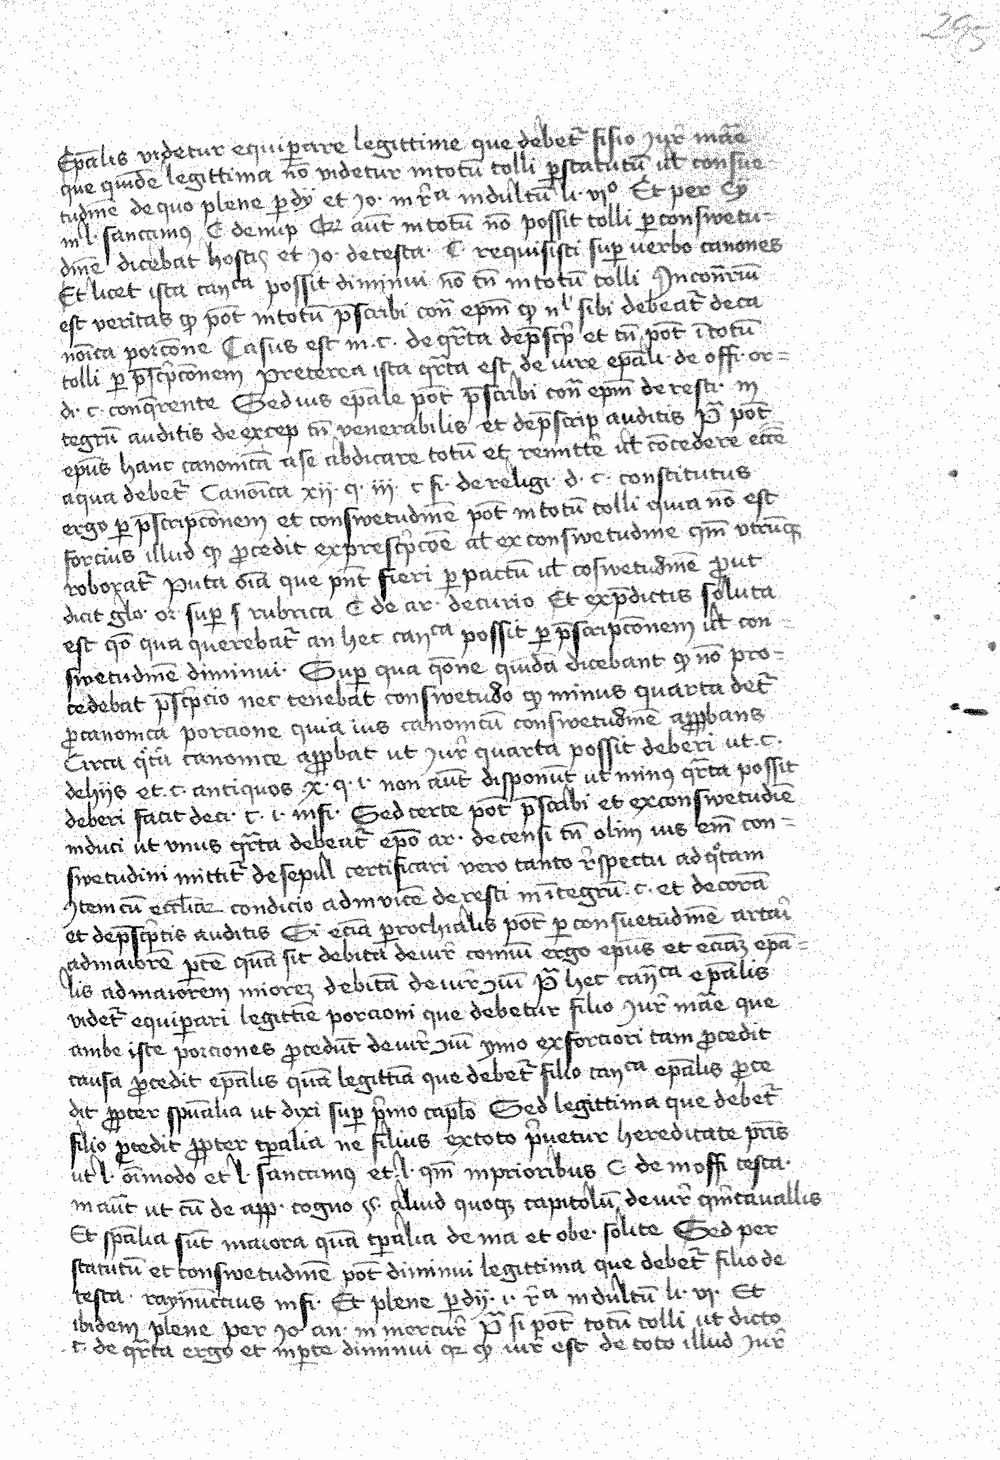 295
Ep̄alis videtur equip̱are legittime que debet᷑ filio Jur̄ nat̄e
que quidē legittima nō videtur in totū tolli p̱ statutū ul̄ consue
tudinē de quo plene p̱ dy et Jo. in r̄a indultū li. vjº Et per Cy
in l. sancimus C de nup aūt in totū nō possit tolli p̱ conswetu=
dinē dicebat hosti et Jo. de testa. C. requisisti sup̱ verbo canones
Et licet ista canca possit diminui nō tn̄ in totū tolli In cont̄riū
est veritas qp pōt in totū p̄scribi con̄ ep̄m qp nl sibi debeat᷑ de ca
noīca porcōne Casus est in. c. de qr̄ta de p̄scp̱ et tn̄ pōt ī totū
tolli p̱ p̄scp̱cōnem Preterea ista qr̄ta est de iure ep̄ali. de offi. or=
di. c. conq̄rente Sed ius ep̄ale pōt p̄scribi con̄ ep̄m de resti. in
tegrū auditis de excep tn̄ venerabilis et de p̄scrip auditis P̄ pōt
ep̄us hanc canonicā a se abdicare totū et remittē ul̄ cōcedere ecc̄e
a qua debet᷑ Canoīca xij. q. iij. c fi. de religi. d. c. constitutus
ergo p̱ p̄scripcōnem et conswetudinē pōt in totū tolli quia nō est
forcius illud qp p̱cedit ex prescp̱cōe al̄ ex conswetudine qm̄ vtrūqꝫ
roborat᷑ Puta oīa que pn̄t fieri p̱ pactū ul̄ coswetudinē prout
dicit glo. or. sup̱ rubrica C de ar. decurio Et exp̄dictis soluta
est q̄o qua querebat᷑ an hec canca possit p̱ p̄scripcōnem ul̄ con=
swetudinē diminui. Sup̱ qua q̄one quidā dicebant qp nō pro=
cedebat p̄scp̱cio nec tenebat conswetudo qp minus quarta det᷑
p̱ canonica porcione quia ius canonicū conswetudinē app̱bans
Circa q̄tā canonice app̱bat ut Jur̄ quarta possit deberi ut. c.
de hiis et. c. antiquos x. q. i. non aūt disponūt ut minꝰ qr̄ta possit
deberi facit deci. c. i. in fi. Sed certe pōt p̄scribi et ex conswetudīe
induci ut vnus qr̄ta debeat᷑ epō ar. de censi tn̄ olim ius em̄ con=
swetudini mittit᷑ de sepul certificari vero tanto r̄spectu ad q̄tam
Item cū eccliar condicio ad invicē de resti in ītegrū. c. et decorā
et de p̄scp̱tis auditis Si eciā p̱rochialis pōt p̱ consuetudinē artari
ad maiorē p̱tē quā sit debita de iur̄ comūi ergo ep̄us et eciaꝫ epā=
lis ad maiorem miorez debitā de iur̄ Jui P̄ hec canca ep̄alis
videt᷑ equip̱ari legittīe porcioni que debetur filio Jur̄ nat̄e que
ambe iste porciones p̱cedūt de iur̄ Jui ymo ex forciori tam p̱cedit
causa p̱cedit ep̄alis quā legittia que debet᷑ filio canca ep̄alis p̱ce
dit p̱pter spūalia ut dixi sup̱ p̱mo cap̱lo Sed legittima que debet᷑
filio p̱cedit p̱pter tp̱alia ne filius ex toto p̱uetur hereditate p̄ris
ut l. oīmodo et l. sancimus et l. qm̄ in prioribus C de in offi testa.
in aūt ut cū de app. cogno aliud quoqꝫ capitolū de iur̄ quicavallis
Et spūalia sūt maiora quā tp̱alia de ma et obe. solite Sed per
statutū et conswetudinē pōt diminui legittima que debet᷑ filio de
testa. raynuccius in fi. Et plene p̱ dij. i. r̄a indultū li. vj. Et
ibidem plene per Jo an. in mercur̄ P̄ si pōt totū tolli ut dicto
c. de qr̄ta ergo et in p̱te diminui qp iur̄ est de toto illud Jur̄